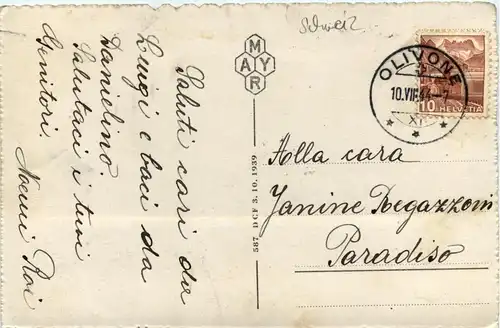 Saluti cari da
Luigi e baci da
Danielino.
Salutaci i tuoi
Genitori.
Noemi
MAYR
587 DCF 3. 10. 1939
Schweiz
OLIVONE
10.VII.44-7
XI
10 HELVETIA
Alla cara
Janine Regazzoni
Paradiso